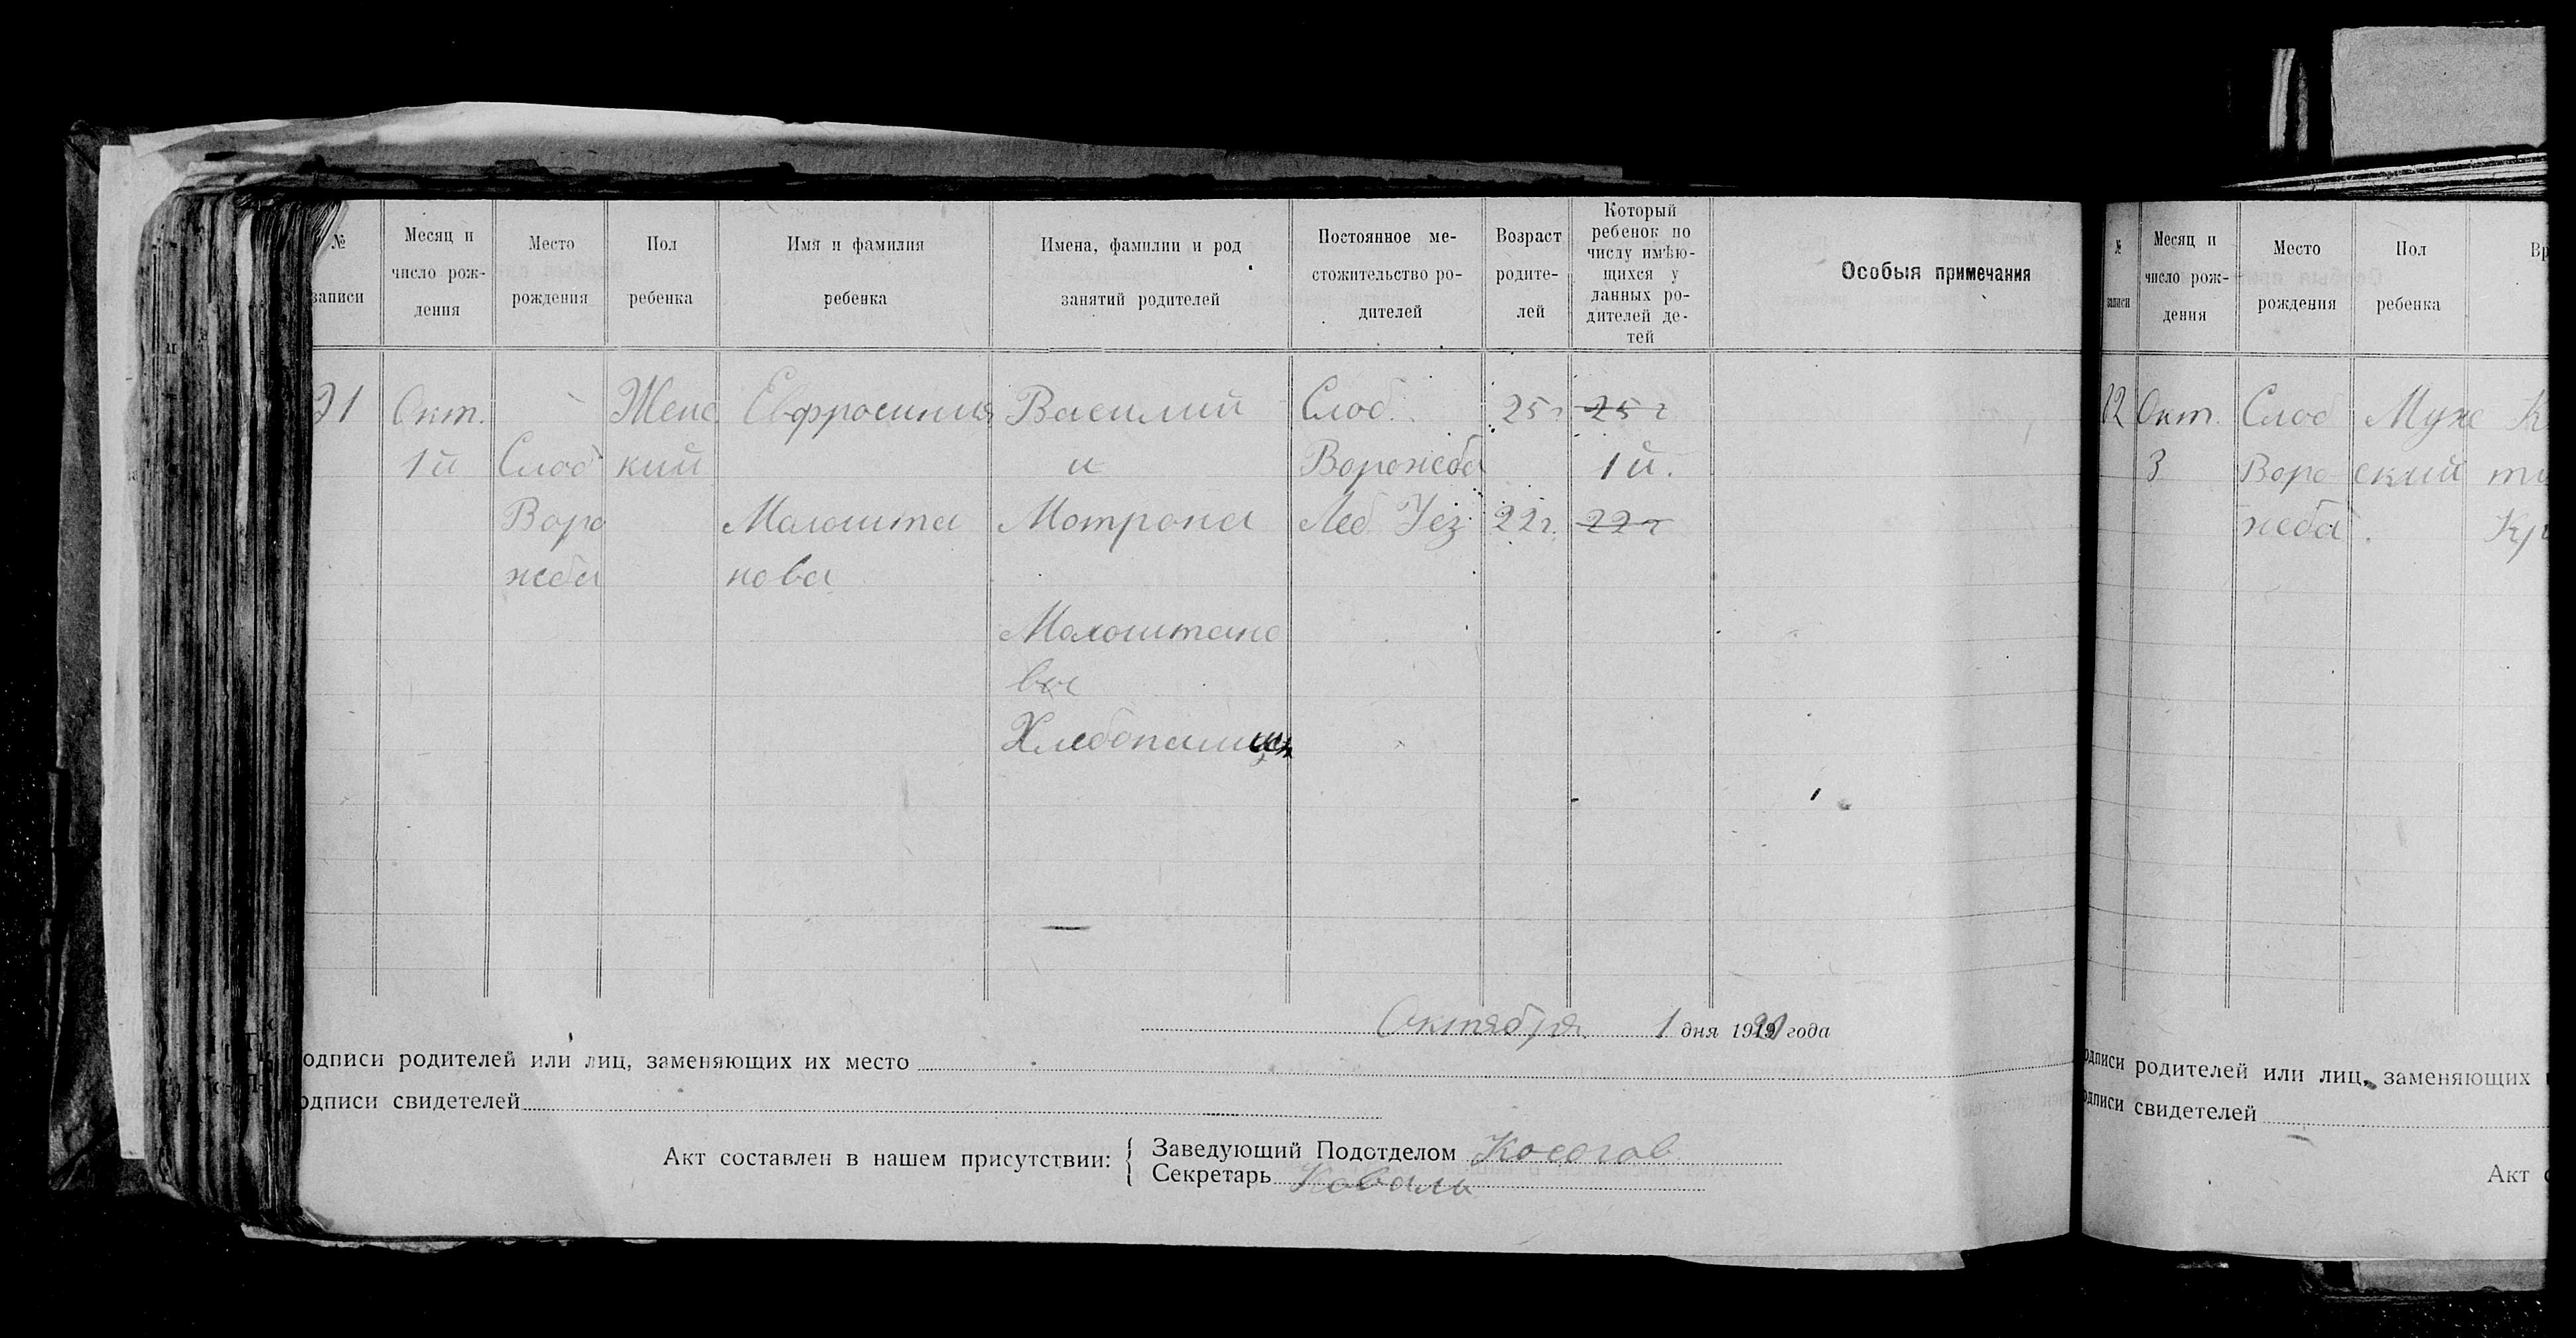 № записи
Месяц и число рож-дения
Место рождения
Пол ребенка
Имя и фамилия ребенка
Имена, фамилии и род занятий родителей
Постоянное ме-стожительство ро-дителей
Возраст родите-лей
Который ребенок по числу имѣю-щихся у данных ро-дителей де-тей
Особыя примечания
Окт. Женс Евфросиния Василий Слоб. 25 г 25 г
1й Слоб кий и Ворожба 1й.
Воро Малошта Мотрона Леб Уез 22 г. 22 г
жба нова
Малоштано
вы
Октября 1 дня 1920 года
одписи родителей или лиц, заменяющих их место
одписи свидетелей
Акт составлен в нашем присутствии:
Заведующий Подотделом Косогов
Секретарь Коваль
№ записи
Месяц и число рож-дения
Место рождения
Пол ребенка
Окт. Слоб Муже
3 Воро ский
жба
одписи родителей или лиц, заменяющих
одписи свидетелей
Акт